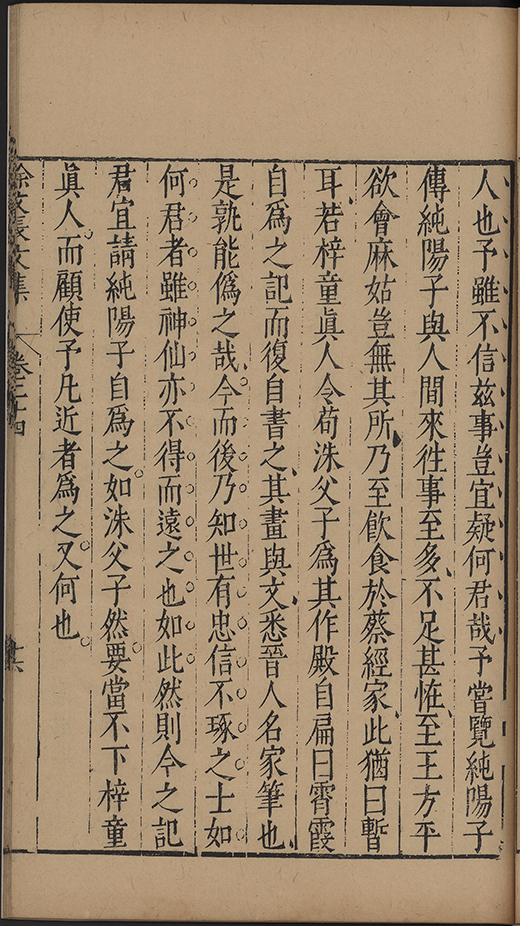 人也予雖不信茲事豈宜疑何君哉予嘗覽純陽子
傳純陽子與人間來徃事至多不足甚恠至王方平
欲會麻姑豈無其所乃至飲食於蔡經家此猶曰暫
耳若梓童眞人令苟洙父子爲其作殿自扁曰霄霞
自爲之記而復自書之其畫與文悉晉人名家筆也
是孰能僞之哉今而後乃知世有忠信不琢之士如
何君者雖神仙亦不得而遠之也如此然則今之記
君宜請純陽子自爲之如洙父子然要當不下梓童
眞人而顧使予凡近者爲之又何也
徐文長文集
卷二十四
十六